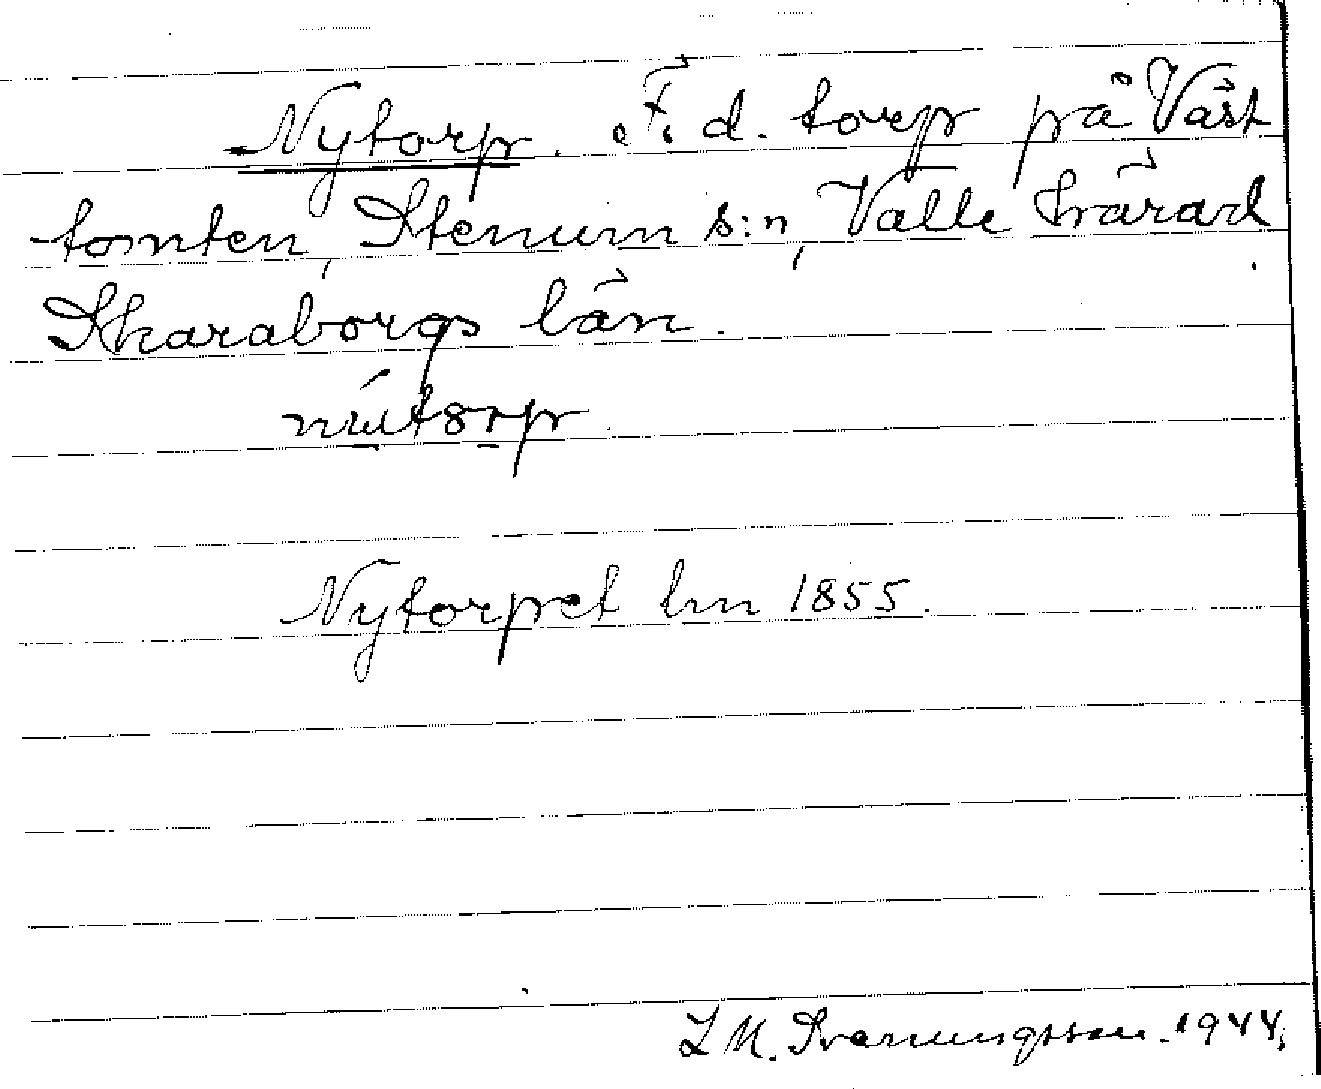 Nytorp. F. d. torp på Väst
tomten, Stenum s:n, Valle härad
Skaraborgs län.
Nytorpet hm 1855.
L M. Svenungsson. 1944.